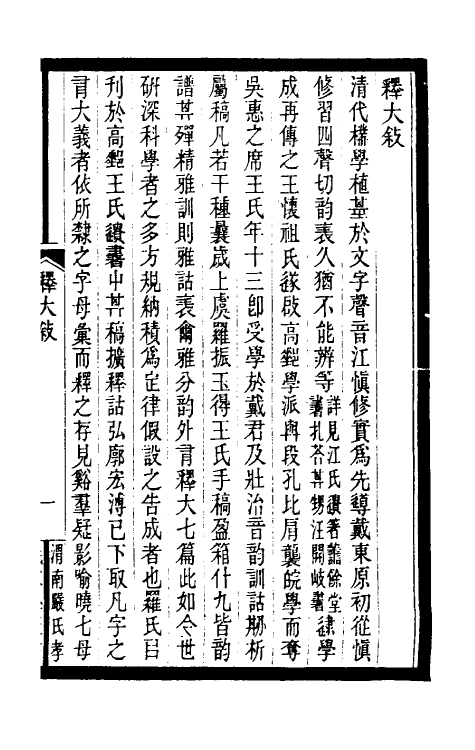 釋大敍
清代樸學植基於文字聲音江愼修實爲先導戴東原初從愼
修習四聲切韵表久猶不能辨等詳見江氏遺著善餘堂書札荅其甥汪開岐書逮學
成再傳之王懷祖氏遂啟高郵學派與段孔比肩襲皖學而奪
吳惠之席王氏年十三卽受學於戴君及壯治音韵訓詁剙析
屬稿凡若干種曩歲上虞羅振玉得王氏手稿盈箱什九皆韵
譜其殫精雅訓則雅詁表爾雅分韵外㫺釋大七篇此如今世
研深科學者之多方規納積爲定律假設之告成者也羅氏㠯
刊於高郵王氏遺書中其稿擴釋詁弘廓宏溥已下取凡字之
㫺大義者依所隸之字母彙而釋之存見谿羣疑影喻曉七母
釋大敍
一
渭南嚴氏孝